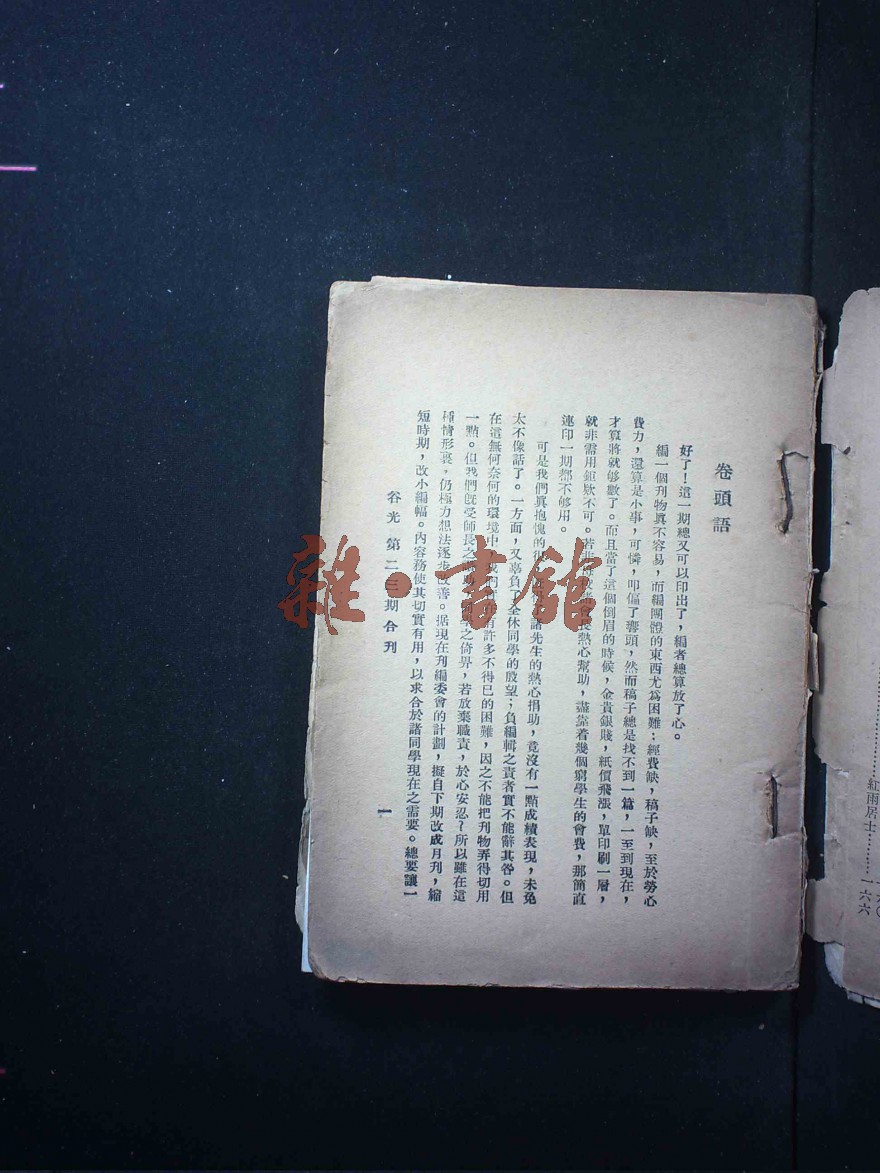 卷頭語
好了！這一期總又可以印出了，編者總算放了心。
編一個刊物眞不容易，而編團體的東西尤爲困難；經費缺，稿子缺，至於勞心
費力，還算是小事，可憐，叩偏了響頭，然而稿子總是找不到一篇，一至到現在，
才寡將就够數了。而且當了這個倒眉的時候，金貴銀賤，紙價飛漲，單印刷一層，
就非需用鉅欵不可。若非熱心幫助，盡靠着幾個窮學生的會費，那簡直
連印一期都不够用。
可是我們眞抱愧的很諸先生的熱心捐助，竟沒有一點成績表現，未免
太不像話了。一方面，又辜負了全休同學的殷望；負編輯之責者實不能辭其咎。但
在這無何奈何的環境中許多不得已的困難，因之不能把刊物弄得切用
一點。但我們旣受師長之之倚界，若放棄職責，於心安忍？所以雖在這
種情形裏，仍極力想法逐步改善。据現在刋編委會的計劃，擬自下期改成月刋，縮
短時期，改小編幅。內容務使其切實有用，以求合於諸同學現在之需要。總要讓一
谷光 第二三期合刊
一
紅雨居士
一六六
雜·書館